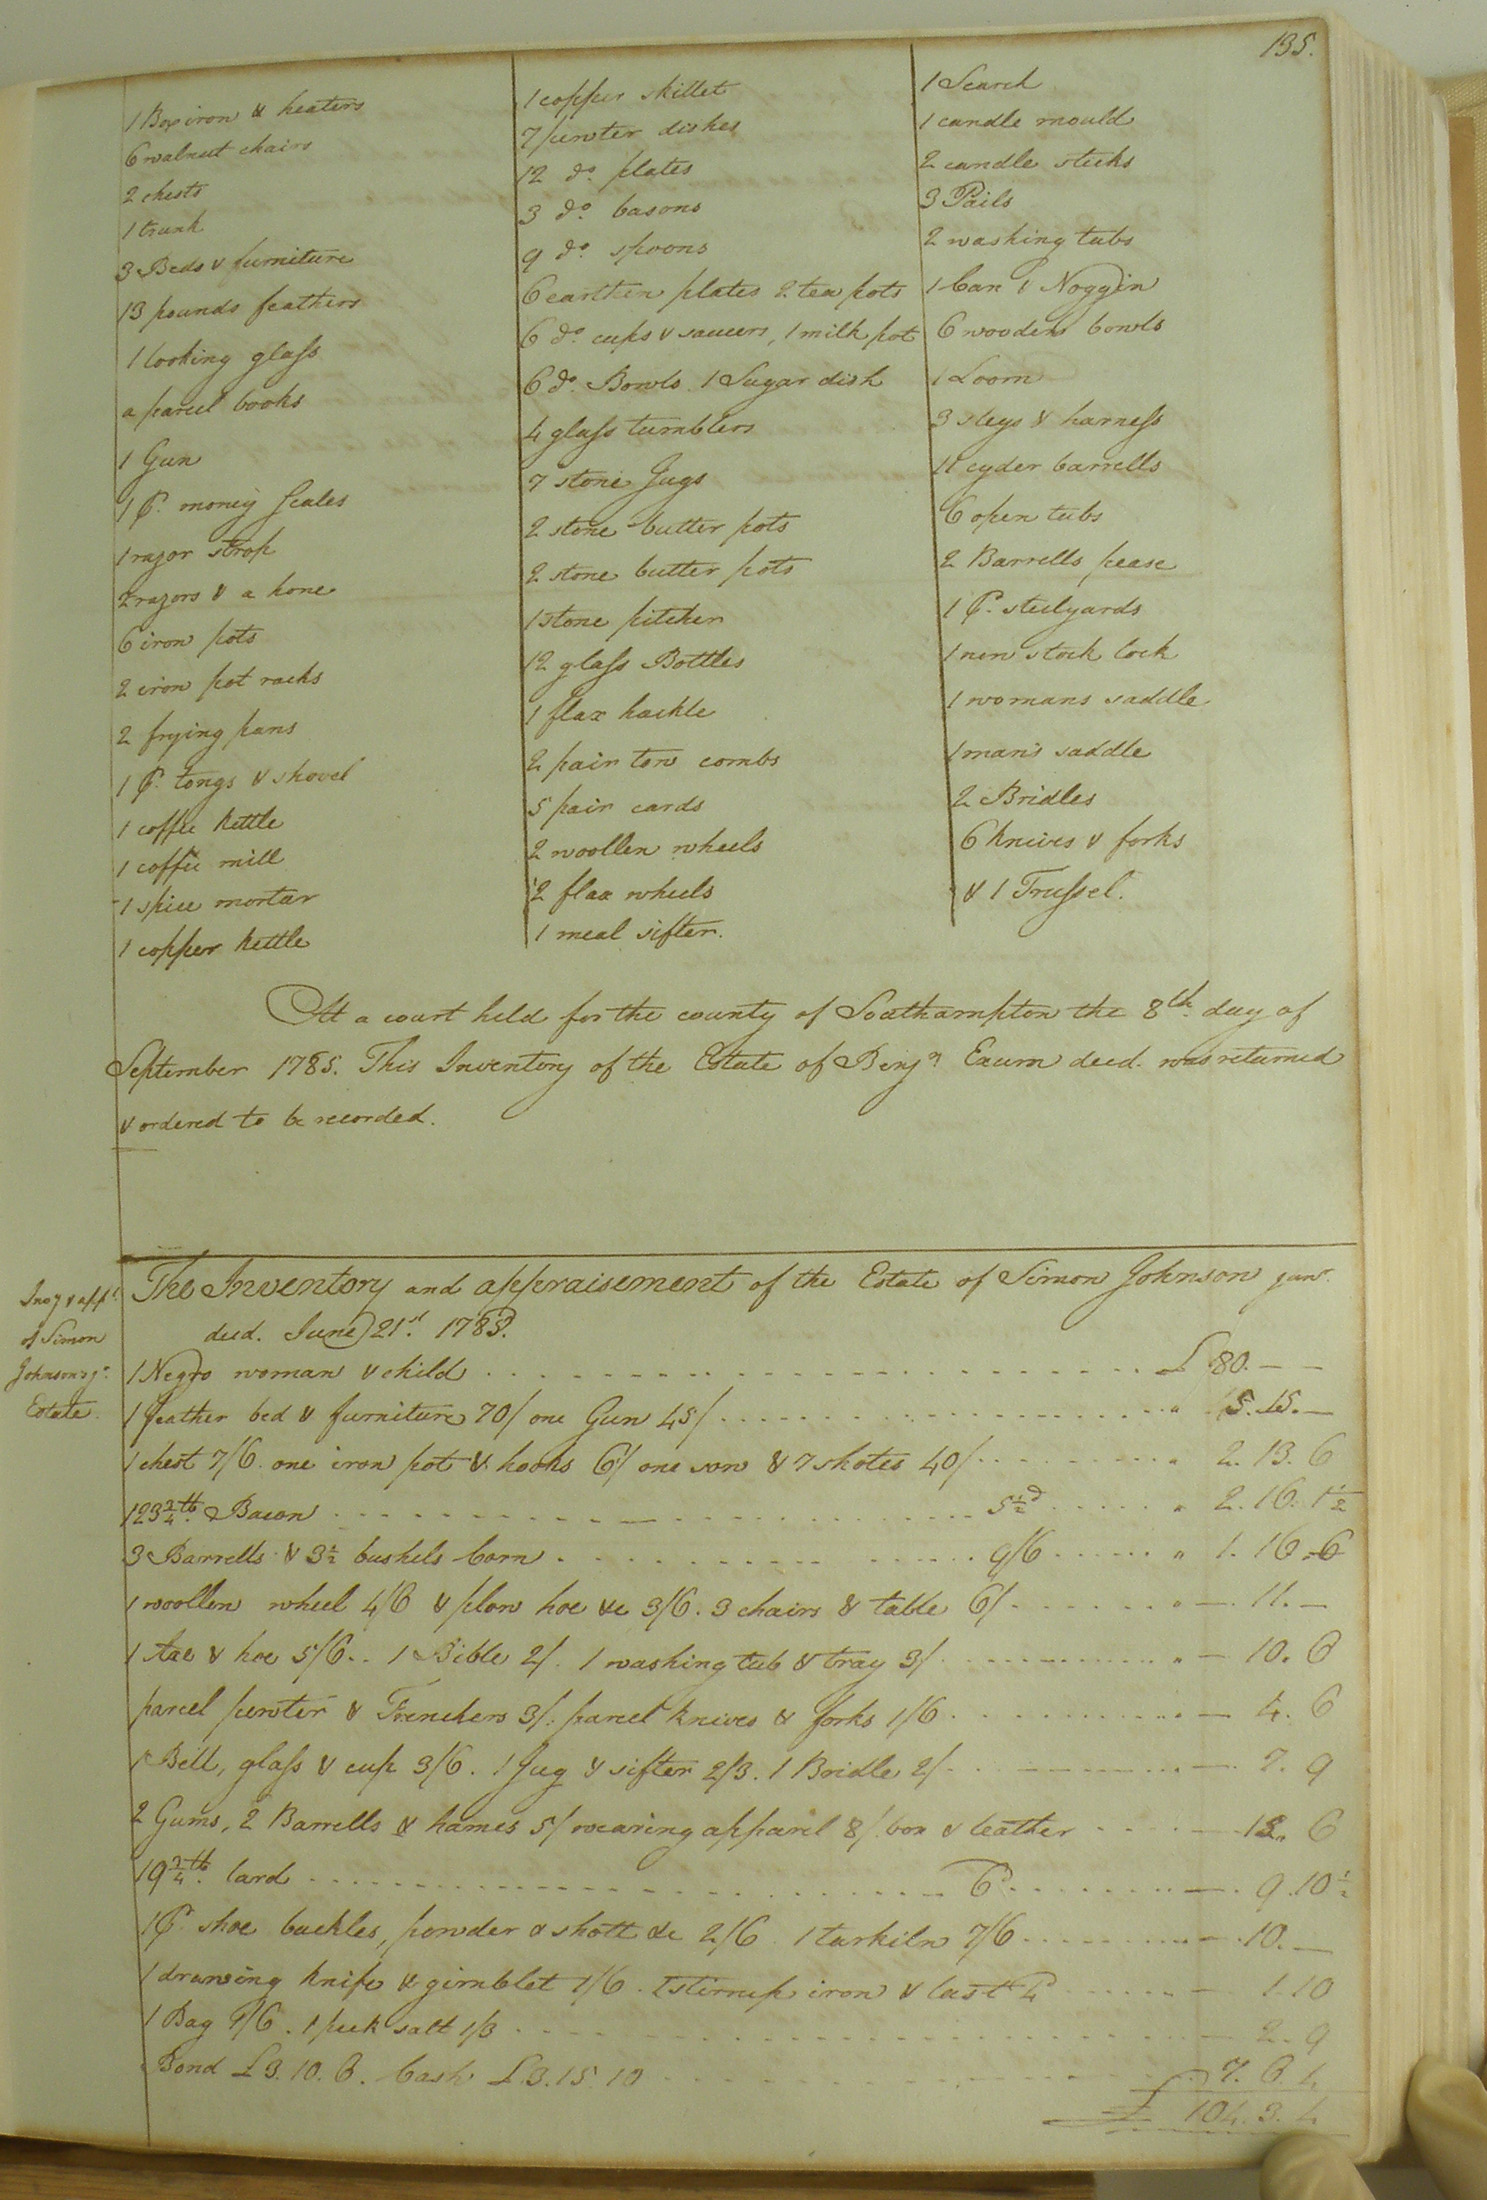 135.
1 Box iron & heaters
6 walnut chairs
2 chests
1 trunk
3 Beds & furniture
13 pounds feathers
1 looking glass
a parcel books
1 Gun
1 P. money Scales
1 razor strop
2 razors & a hone
6 iron pots
2 iron pot racks
2 frying pans
1 P. tongs & shovel
1 coffee kettle
1 coffee mill
1 spice mortar
1 copper kettle
1 copper skillet
7 pewter dishes
12 do. plates
3 do. basons
9 do. spoons
6 earthen plates 2 tea pots
6 do. cups & saucers, 1 milk pot
6 do. Bowls 1 Sugar dish
4 glass tumblers
7 stone Jugs
2 stone butter pots
2 stone butter pots
1 stone pitcher
12 glass Bottles
1 flax hackle
2 pair tow combs
5 pair cards
2 woollen wheels
2 flax wheels
1 meal sifter.
1 Search
1 candle mould
2 candle sticks
3 Pails
2 washing tubs
1 Can 1 Noggin
6 wooden bowls
1 Loom
3 sleys & harness
11 cyder barrells
6 open tubs
2 Barrells pease
1 P. steelyards
1 new stock lock
1 womans saddle
1 man's saddle
2 Bridles
6 knives & forks
& 1 Trussel.
At a court held for the county of Southampton the 8th. day of
September 1785. This Inventory of the Estate of Benjn. Exum decd. was returned
& ordered to be recorded.
Invy & appt.
of Simon
Johnson jr.
Estate.
The Inventory and appraisement of the Estate of Simon Johnson junr.
decd. June 21st. 1785.
1 Negro woman & child £ 80. — —
1 feather bed & furniture 70/ one Gun 45/ " 5. 15. —
1 chest 7/6. one iron pot & hooks 6/ one sow & 7 shotes 40/ " 2. 13. 6
123¾ lb. Bacon 5½d " 2. 16. 1½
3 Barrells & 3½ bushels Corn 9/6 " 1. 16. 6
1 woollen wheel 4/6 & plow hoe &c 3/6. 3 chairs & table 6/ " — 11. —
1 Axe & hoe 5/6.. 1 Bible 2/. 1 washing tub & tray 3/ " — 10. 6
parcel pewter & Trenchers 3/. parcel knives & forks 1/6 — 4. 6
1 Bell, glass & cup 3/6. 1 Jug & sifter 2/3. 1 Bridle 2/ — 7. 9
2 Gums, 2 Barrells & hames 5/ wearing apparel 8/. box & leather — 13. 6
19¾ lb. lard 6 — 9. 10½
1 P. shoe buckles, powder & shott &c 2/6 1 turkiln 7/6 — 10. —
1 drawing knife & gimblet 1/6. 1 stirrup iron & last 4 — 1. 10
1 Bag 1/6. 1 peck salt 1/3 — 2. 9
Bond £3. 10. 6. Cash £3. 15. 10 7. 6. 4
£ 104. 3. 4